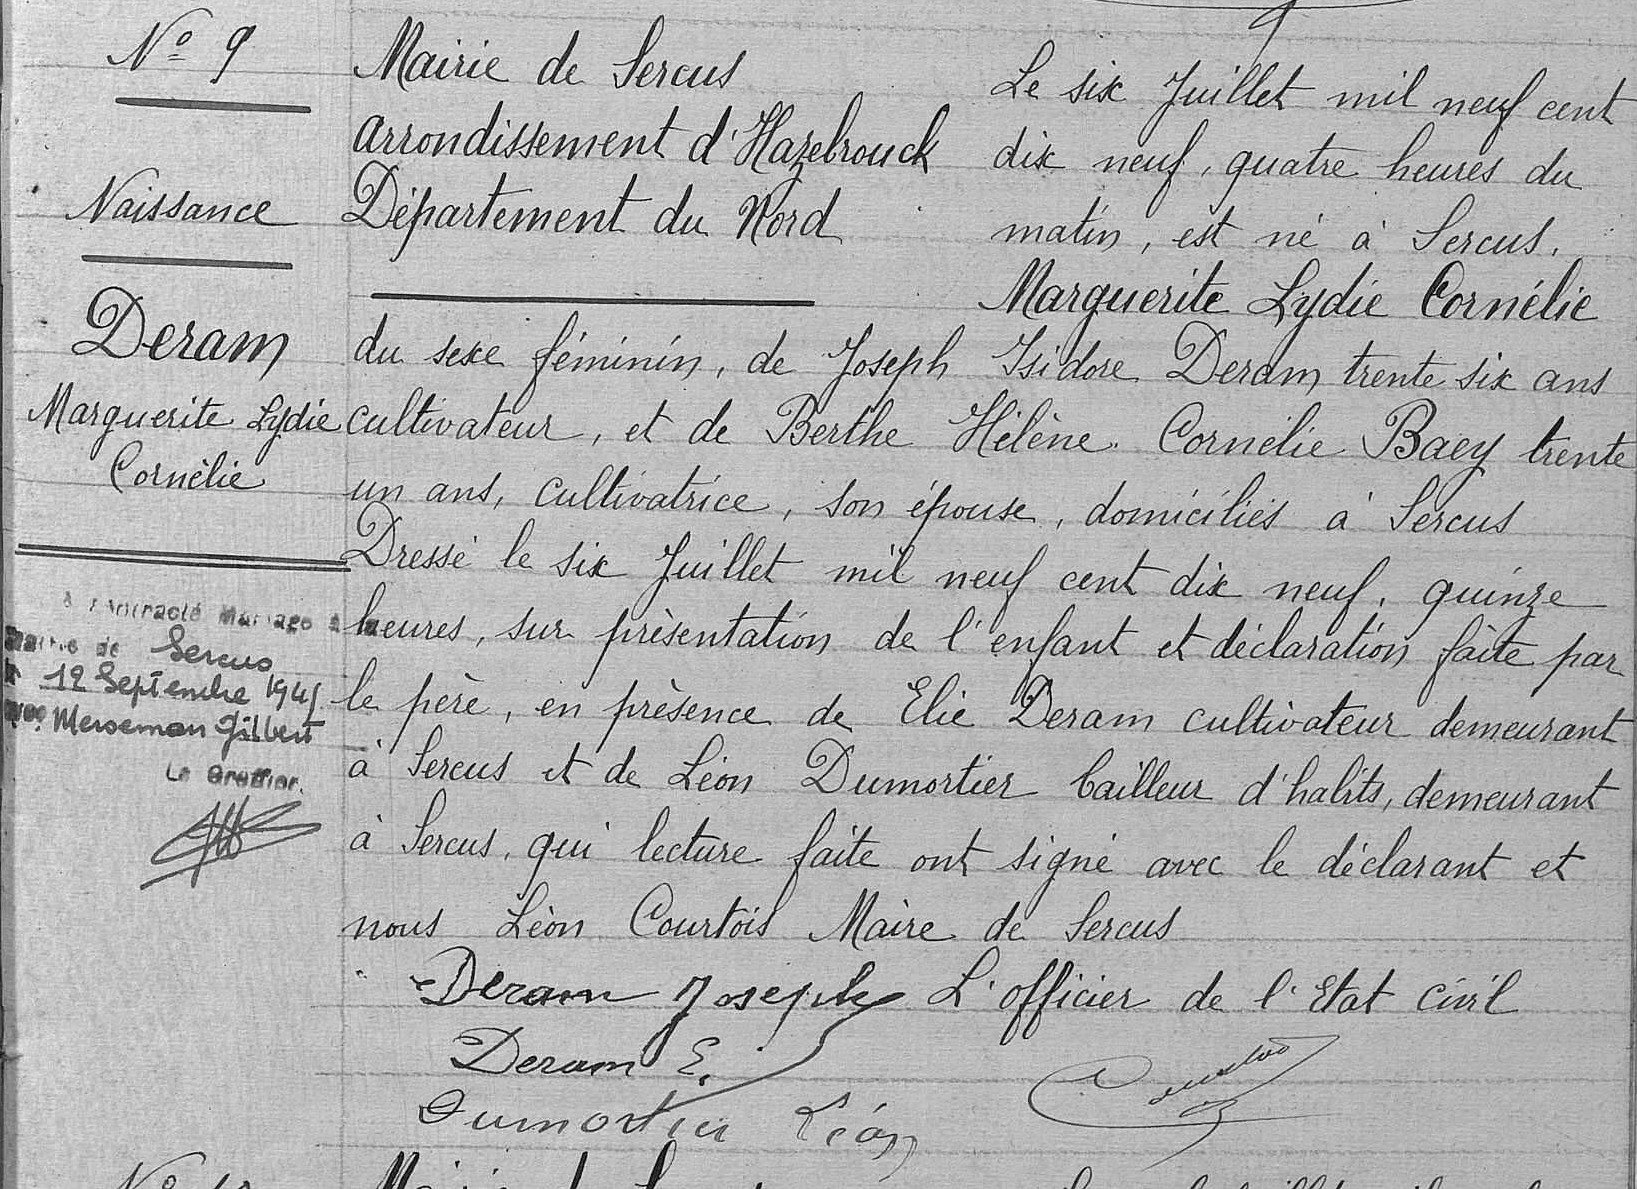 Nº 9
Naissance
Deram
Marguerite Lydie
Cornélie
a contracté Mariage à la
Mairie de Sercus
le 12 Septembre 194
avec Merseman Gilbert
Le Greffier.
Mairie de Sercus
arrondissement d'Hazebrouck
Département du Nord
Le six Juillet mil neuf cent
dix neuf, quatre heures du
matin, est né à Sercus,
Marguerite Lydie Cornélie
du sexe féminin, de Joseph Isidore Deram trente six ans
cultivateur, et de Berthe Hélène Cornélie Baey trente
un ans, cultivatrice, son épouse, domiciliés à Sercus
Dressé le six Juillet mil neuf cent dix neuf, quinze
heures, sur présentation de l'enfant et déclaration faite par
le père, en présence de Elie Deram cultivateur demeurant
à Sercus et de Léon Dumortier bailleur d'habits, demeurant
à Sercus, qui lecture faite ont signé avec le déclarant et
nous Léon Courtois Maire de Sercus
Deram Joseph L'officier de l'Etat civil
Deram E.
Dumortier Léon